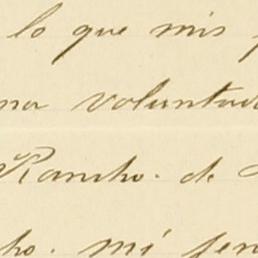 lo que mis
na voluntad
Rancho. de
ho. mi